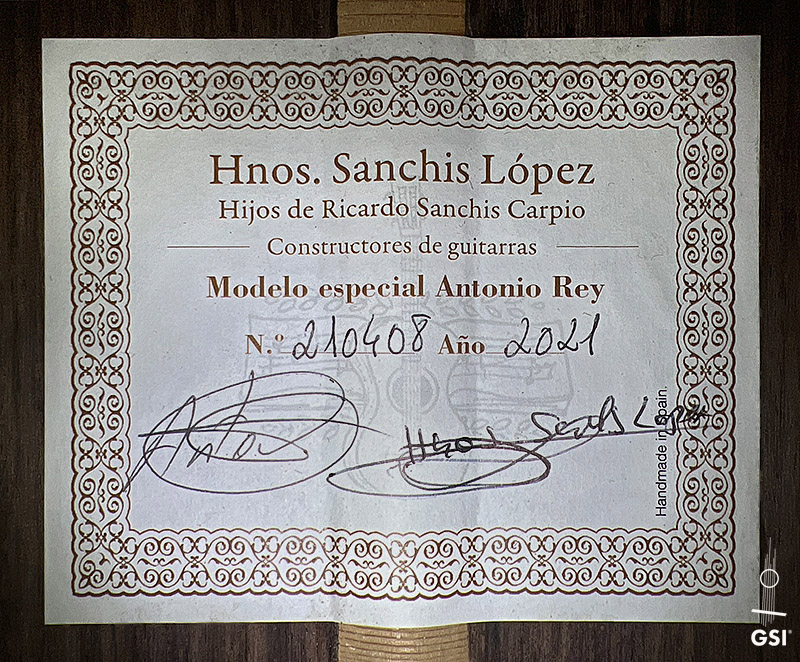 Hnos. Sanchis López
Hijos de Ricardo Sanchis Carpio
Constructores de guitarras
Modelo especial Antonio Rey
N.º 210408 Año 2021
Hnos Sanchis López
Handmade in Spain.
GSI